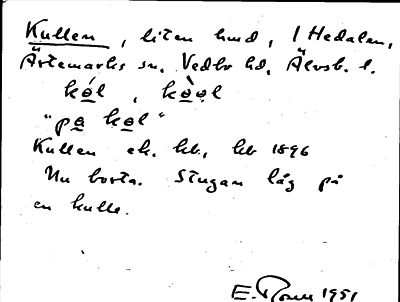 Kullen, liten hmd, i Hedalen,
Ärtemarks sn. Vedbo hd, Älvsb. l.
"på
Kullen ek. kb, kb 1896
Nu borta. Stugan låg på
en kulle.
E. 1951